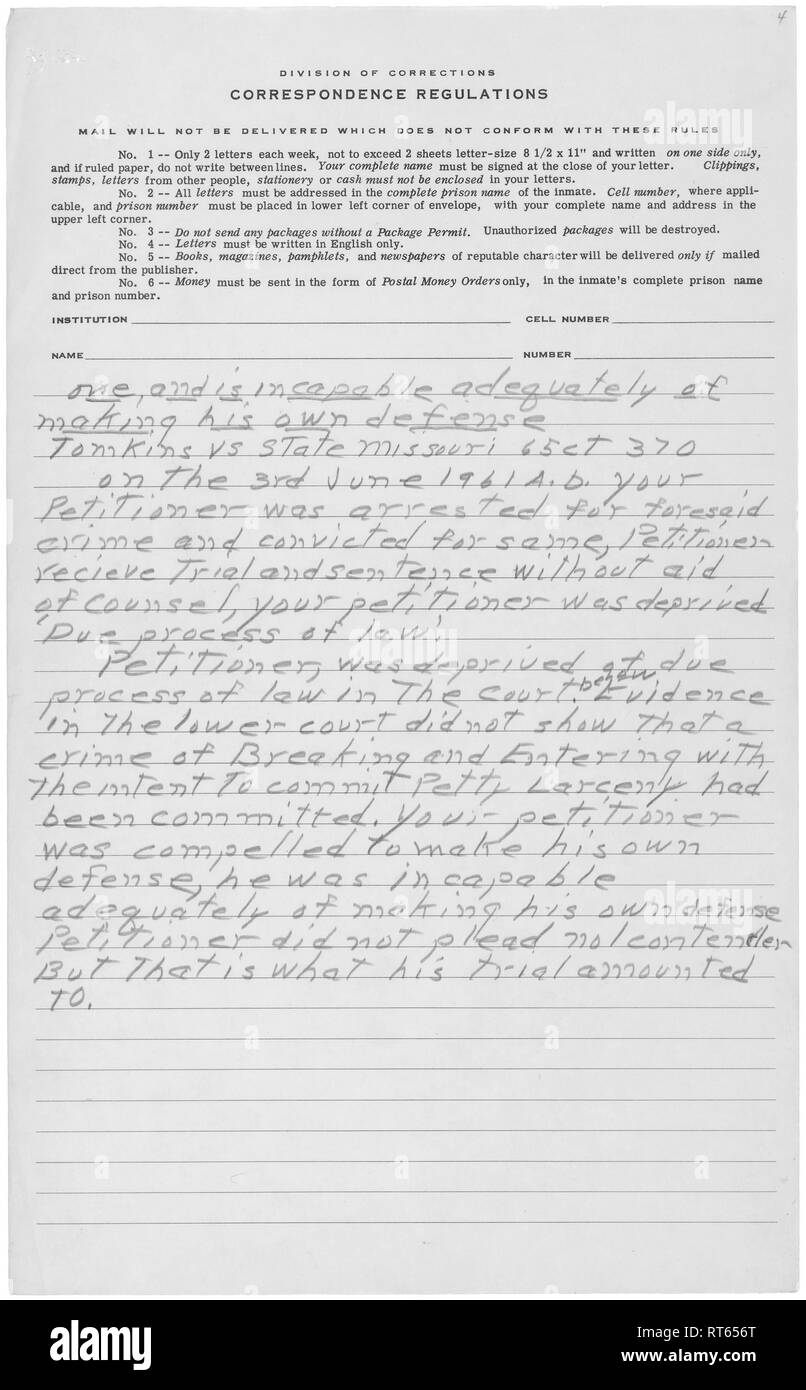 4
DIVISION OF CORRECTIONS
CORRESPONDENCE REGULATIONS
MAIL WILL NOT BE DELIVERED WHICH DOES NOT CONFORM WITH THESE RULES
No. 1 -- Only 2 letters each week, not to exceed 2 sheets letter-size 8 1/2 x 11" and written on one side only,
and if ruled paper, do not write between lines. Your complete name must be signed at the close of your letter. Clippings,
stamps, letters from other people, stationery or cash must not be enclosed in your letters.
No. 2 -- All letters must be addressed in the complete prison name of the inmate. Cell number, where appli-
cable, and prison number must be placed in lower left corner of envelope, with your complete name and address in the
upper left corner.
No. 3 -- Do not send any packages without a Package Permit. Unauthorized packages will be destroyed.
No. 4 -- Letters must be written in English only.
No. 5 -- Books, magazines, pamphlets, and newspapers of reputable character will be delivered only if mailed
direct from the publisher.
No. 6 -- Money must be sent in the form of Postal Money Orders only, in the inmate's complete prison name
and prison number.
INSTITUTION CELL NUMBER
NAME NUMBER
one, and is incapable adequately of
making his own defense
Tomkins vs State Missouri 65ct 370
on the 3rd June 1961 A.D. your
Petitioner was arrested for foresaid
crime and convicted for same, Petitioner
recieve trial and sentence without aid
of counsel, your petitioner was deprived
'Due process of law'.
Petitioner, was deprived of due
process of law in the court below. Evidence
in the lower court did not show that a
crime of Breaking and Entering with
the intent to commit Petty Larceny had
been committed. Your petitioner
was compelled to make his own
defense, he was incapable
adequately of making his own defense
Petitioner did not plead nol contender
But that is what his trial amounted
to.
alamy
Image ID: RT656T
www.alamy.com